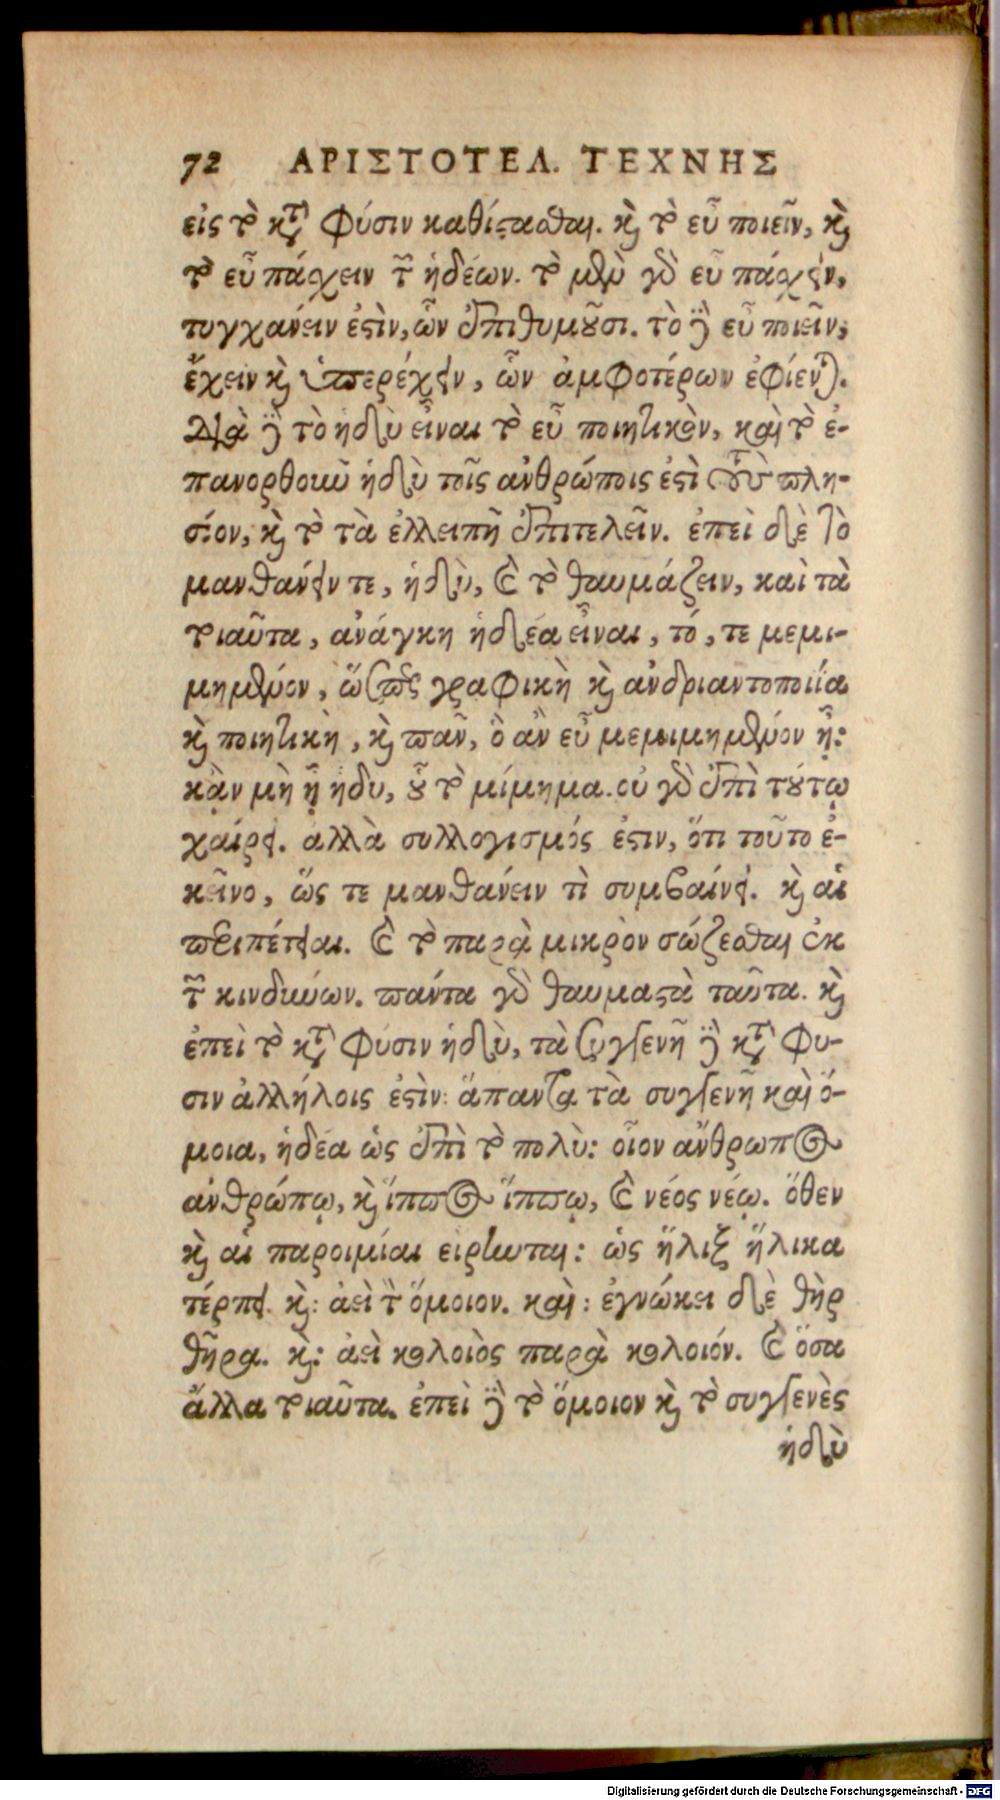 72 ΑΡΙΣΤΟΤΕΛ. ΤΕΧΝΗΣ
εἰς τὸ κτ̀ φύσιν καθίϛασθαι. κὶ τὸ εὖ ποιεῖν, κὶ
τὸ εὖ πάσχειν τ͂ ἡδέων. τὸ μὲν γὸ εὖ πάσχειν,
τυγχάνειν ἐϛὶν, ὧν ἐπιθυμοῦσι. τὸ δὲ εὖ ποιεῖν,
ἔχειν κὶ ὑπερέχειν, ὧν ἀμφοτέρων ἐφίεντ).
διὰ δὲ τὸ ἡδὺ εἶναι τὸ εὖ ποιητικὸν, καὶ τὸ ἐ-
πανορθοιῶ ἡδὺ τοῖς ἀνθρώποις ἐϛὶ τοὺς πλη-
σίον, κὶ τὸ τὰ ἐλλειπῆ ἐπιτελεῖν. ἐπεὶ δὲ τὸ
μανθάνειν τε, ἡδὺ, καὶ τὸ θαυμάζειν, καὶ τὰ
τοιαῦτα, ἀνάγκη ἡδέα εἶναι, τό, τε μεμι-
μημένον, ὥσπερ γραφικὴ κὶ ἀνδριαντοποιία
κὶ ποιητικὴ, κὶ πᾶν, ὃ ἂν εὖ μεμιμημένον ᾖ:
κᾂν μὴ ᾖ ἡδυ, οὗ τὸ μίμημα. οὐ γὸ ἐπὶ τούτῳ
χαίρει. ἀλλὰ συλλογισμός ἐϛιν, ὅτι τοῦτο ἐ-
κεῖνο, ὥς τε μανθάνειν τὶ συμβαίνει. κὶ αἱ
περιπέτειαι. καὶ τὸ παρὰ μικρὸν σώζεσθαι ἐκ
τ͂ κινδύνων. πάντα γὸ θαυμαϛὰ ταῦτα. κὶ
ἐπεὶ τὸ κτ̀ φύσιν ἡδὺ, τὰ συγγενῆ δὲ κτ̀ φύ-
σιν ἀλλήλοις ἐϛὶν: ἅπαντα τὰ συγγενῆ καὶ ὅ-
μοια, ἡδέα ὡς ἐπὶ τὸ πολὺ: οἷον ἄνθρωπος
ἀνθρώπῳ, κὶ ἵππος ἵππῳ, καὶ νέος νέῳ. ὅθεν
κὶ αἱ παροιμίαι εἴρηνται: ὡς ἥλιξ ἥλικα
τέρπει. κὶ: ἀεὶ τ̀ ὅμοιον. καὶ: ἐγνώκει δὲ θὴρ
θῆρα. κὶ: ἀεὶ κολοιὸς παρὰ κολοιόν. καὶ ὅσα
ἄλλα τοιαῦτα. ἐπεὶ δὲ τὸ ὅμοιον κὶ τὸ συγγενὲς
ἡδὺ
Digitalisierung gefördert durch die Deutsche Forschungsgemeinschaft - DFG